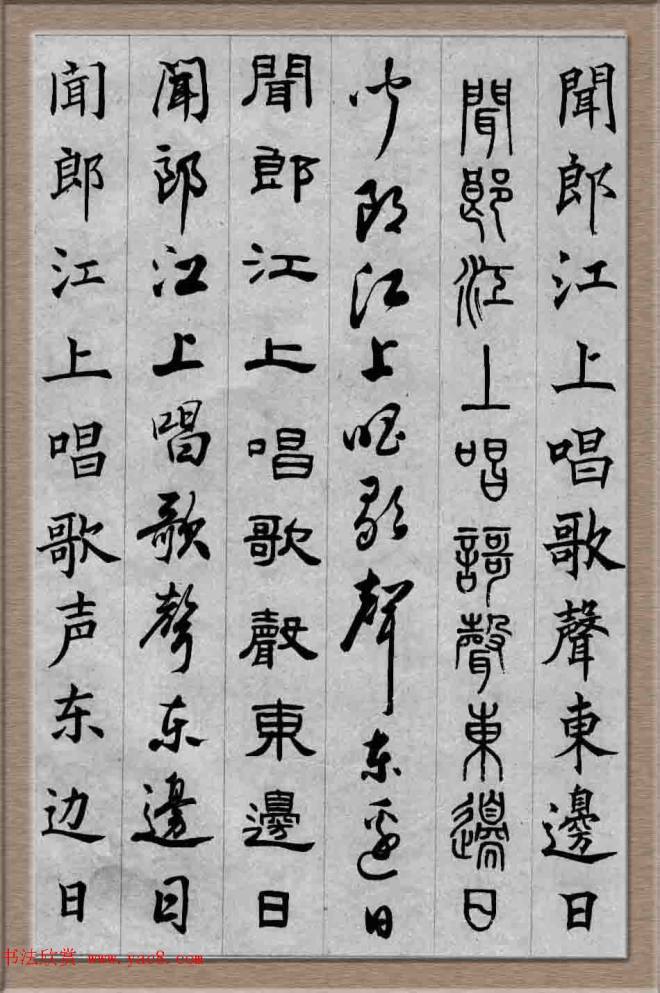 聞郎江上唱歌聲東邊日
聞郎江上唱謌聲東邊日
闻郎江上唱歌聲东邊日
聞郎江上唱歌聲東邊日
聞郎江上唱歌聲东邊日
闻郎江上唱歌声东边日
书法欣赏 www.yac8.com